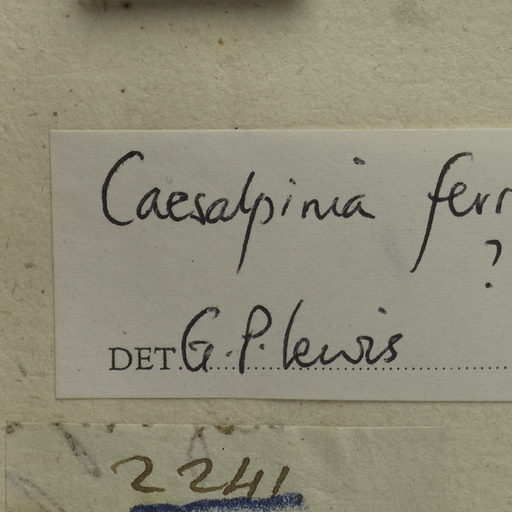 Caesalpinia ferr
?
DET. G. P. Lewis
2241